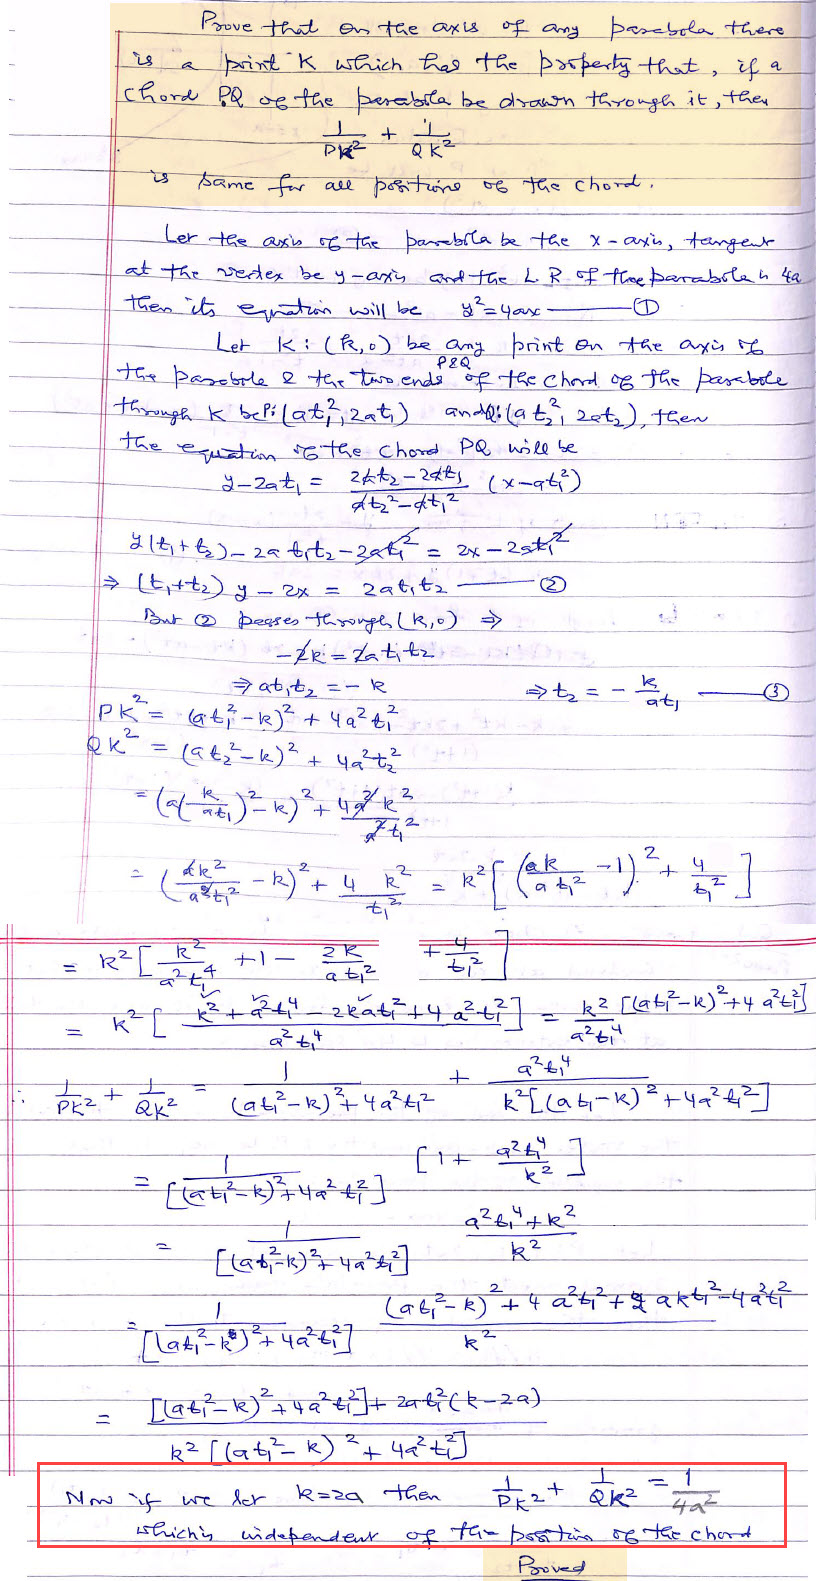 Prove that on the axis of any parabola there
is a point K which has the property that, if a
chord PQ of the parabola be drawn through it, then
1/PK² + 1/QK²
is same for all positions of the chord.
Let the axis of the parabola be the x-axis, tangent
at the vertex be y-axis and the L R of the parabola is 4a
then its equation will be y²=4ax ——— ①
Let K: (k,0) be any point on the axis of
the parabola & the two ends P&Q of the chord of the parabola
through K be P:(at₁², 2at₁) and Q:(at₂², 2at₂), then
the equation of the chord PQ will be
y-2at₁ = (2at₂-2at₁)/(at₂²-at₁²) (x-at₁²)
y(t₁+t₂)-2at₁t₂-2at₁² = 2x-2at₁²
⇒ (t₁+t₂)y-2x = 2at₁t₂ ——— ②
But ② passes through (k,0) ⇒
-2k = 2at₁t₂
⇒ at₁t₂ = -k ⇒ t₂ = -k/at₁ ——— ③
PK² = (at₁²-k)² + 4a²t₁²
QK² = (at₂²-k)² + 4a²t₂²
= (a(-k/at₁)²-k)² + 4a²k²/a²t₁²
= (ak²/a²t₁² - k)² + 4 k²/t₁² = k²[(ak/at₁² -1)² + 4/t₁²]
= k²[k²/a²t₁⁴ +1- 2k/at₁² + 4/t₁²]
= k²[(k²+a²t₁⁴-2kat₁²+4a²t₁²)/a²t₁⁴] = k²/a²t₁⁴ [(at₁²-k)²+4a²t₁²]
∴ 1/PK² + 1/QK² = 1/((at₁²-k)²+4a²t₁²) + a²t₁⁴/(k²[(at₁-k)²+4a²t₁²])
= 1/[(at₁²-k)²+4a²t₁²] [1+ a²t₁⁴/k²]
= 1/[(at₁²-k)²+4a²t₁²] (a²t₁⁴+k²)/k²
= 1/[(at₁²-k)²+4a²t₁²] ((at₁²-k)²+4a²t₁²+2akt₁²-4a²t₁²)/k²
= ([(at₁²-k)²+4a²t₁²]+2at₁²(k-2a))/(k²[(at₁²-k)²+4a²t₁²])
Now if we let k=2a then 1/PK² + 1/QK² = 1/4a²
which is independent of the position of the chord
Proved